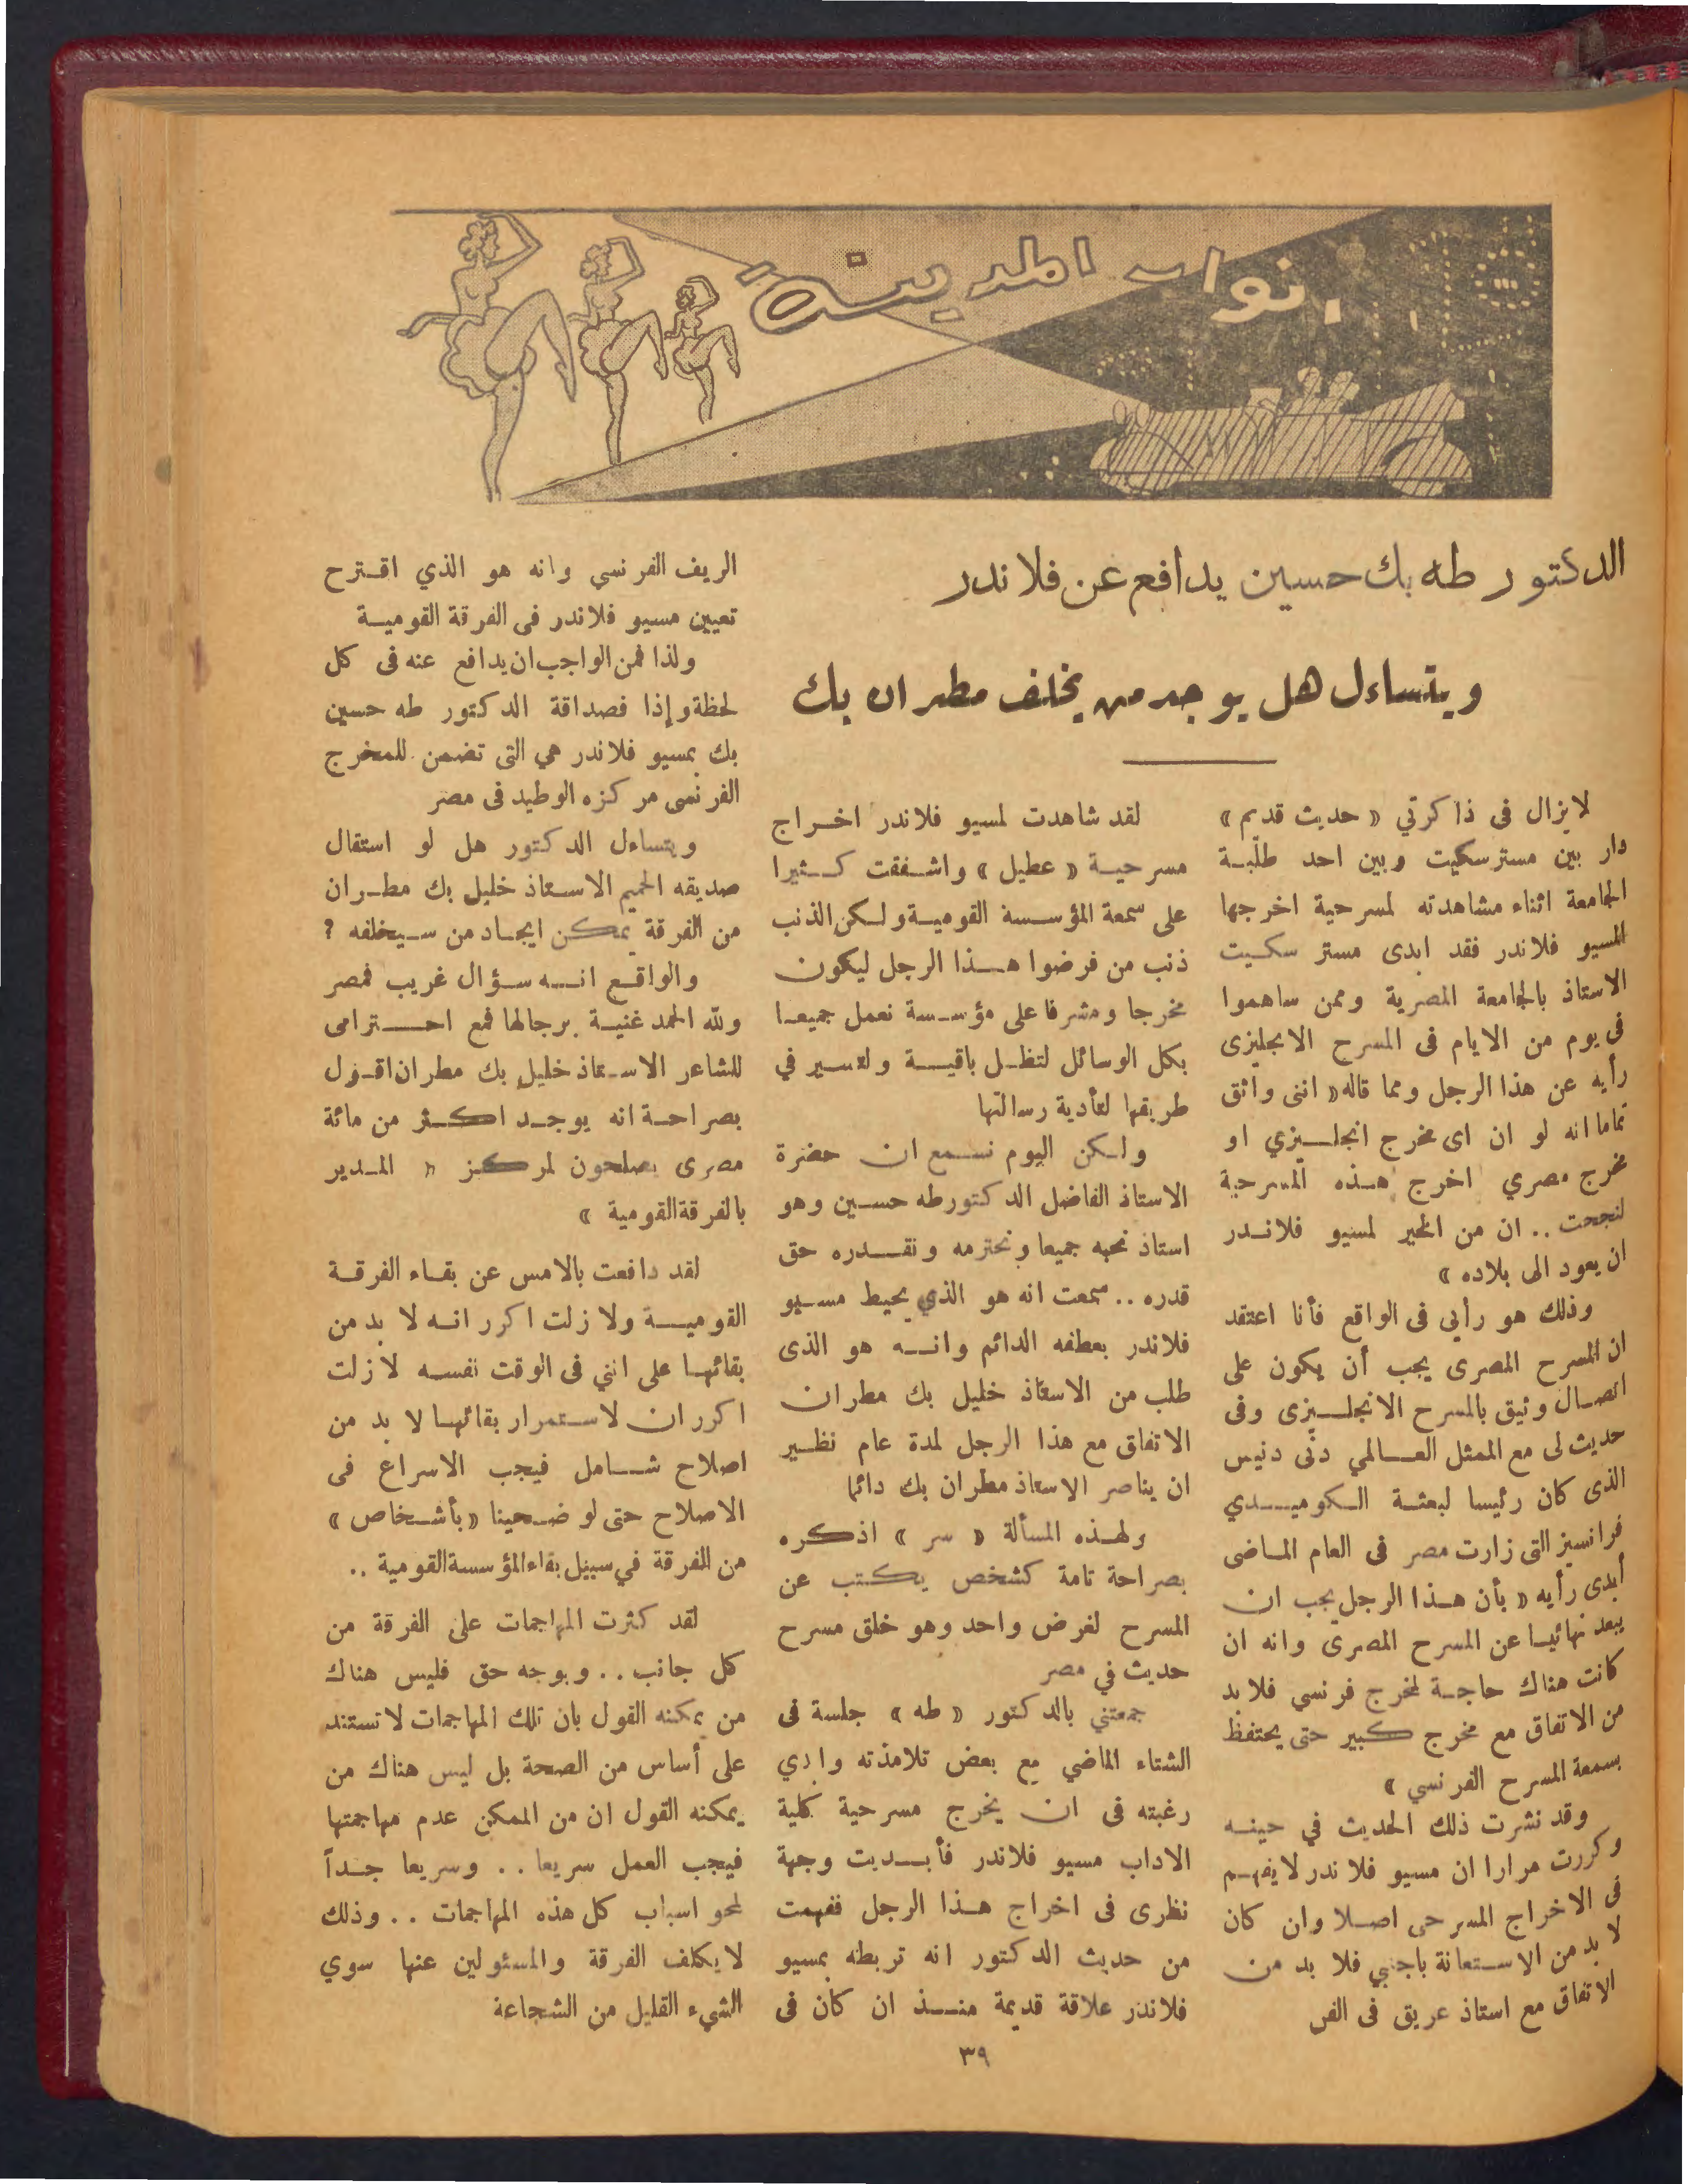 انوار المدينة
الدكتور طه بك حسين يدافع عن فلاندر
ويتساءل هل يوجد من يخلف مطران بك
لا يزال فى ذاكرتي « حديث قديم »
دار بين مستر سكيت وبين احد طلبة
الجامعة اثناء مشاهدته لمسرحية اخرجها
المسيو فلاندر فقد ابدى مستر سكيت
الاستاذ بالجامعة المصرية وممن ساهموا
فى يوم من الايام فى المسرح الانجليزى
رأيه عن هذا الرجل ومما قاله « اننى واثق
تماما انه لو ان اى مخرج انجليزي او
مخرج مصري اخرج هذه المسرحية
لنجحت .. ان من الخير لمسيو فلاندر
ان يعود الى بلاده »
وذلك هو رأيى فى الواقع فأنا اعتقد
ان المسرح المصرى يجب أن يكون على
اتصال وثيق بالمسرح الانجليزى وفى
حديث لى مع الممثل العالمي دنى دنيس
الذى كان رئيسا لبعثة الكوميدي
فرانسيز التى زارت مصر فى العام الماضى
أبدى رأيه « بأن هذا الرجل يجب ان
يبعد نهائيا عن المسرح المصرى وانه ان
كانت هناك حاجة لمخرج فرنسي فلا بد
من الاتفاق مع مخرج كبير حتى يحتفظ
بسمعة المسرح الفرنسي »
وقد نشرت ذلك الحديث في حينه
وكررت مرارا ان مسيو فلاندر لا يفهم
فى الاخراج المسرحى اصلا وان كان
لا بد من الاستعانة باجنبي فلا بد من
الاتفاق مع استاذ عريق فى الفن
لقد شاهدت لمسيو فلاندر اخراج
مسرحية « عطيل » واشفقت كثيرا
على سمعة المؤسسة القومية ولكن الذنب
ذنب من فرضوا هذا الرجل ليكون
مخرجا ومشرفا على مؤسسة نعمل جميعا
بكل الوسائل لتظل باقية ولتسير في
طريقها لتأدية رسالتها
ولكن اليوم نسمع ان حضرة
الاستاذ الفاضل الدكتور طه حسين وهو
استاذ نحبه جميعا ونحترمه ونقدره حق
قدره .. سمعت انه هو الذي يحيط مسيو
فلاندر بعطفه الدائم وانه هو الذى
طلب من الاستاذ خليل بك مطران
الاتفاق مع هذا الرجل لمدة عام نظير
ان يناصر الاستاذ مطران بك دائما
ولهذه المسألة « سر » اذكره
بصراحة تامة كشخص يكتب عن
المسرح لغرض واحد وهو خلق مسرح
حديث في مصر
جمعتني بالدكتور « طه » جلسة فى
الشتاء الماضي مع بعض تلامذته وابدي
رغبته فى ان يخرج مسرحية كلية
الاداب مسيو فلاندر فأبديت وجهة
نظرى فى اخراج هذا الرجل ففهمت
من حديث الدكتور انه تربطه بمسيو
فلاندر علاقة قديمة منذ ان كان فى
الريف الفرنسي وانه هو الذي اقترح
تعيين مسيو فلاندر فى الفرقة القومية
ولذا فمن الواجب ان يدافع عنه فى كل
لحظة وإذا فصداقة الدكتور طه حسين
بك بمسيو فلاندر هي التى تضمن للمخرج
الفرنسى مركزه الوطيد فى مصر
ويتساءل الدكتور هل لو استقال
صديقه الحميم الاستاذ خليل بك مطران
من الفرقة يمكن ايجاد من سيخلفه ؟
والواقع انه سؤال غريب فمصر
ولله الحمد غنية برجالها فمع احترامى
للشاعر الاستاذ خليل بك مطران اقول
بصراحة انه يوجد اكثر من مائة
مصرى يصلحون لمركز « المدير
بالفرقة القومية »
لقد دافعت بالامس عن بقاء الفرقة
القومية ولا زلت اكرر انه لا بد من
بقائها على انني فى الوقت نفسه لا زلت
اكرر ان لاستمرار بقائها لا بد من
اصلاح شامل فيجب الاسراع فى
الاصلاح حتى لو ضحينا « بأشخاص »
من الفرقة في سبيل بقاء المؤسسة القومية ..
لقد كثرت المهاجمات على الفرقة من
كل جانب .. وبوجه حق فليس هناك
من يمكنه القول بان تلك المهاجمات لا تستند
على أساس من الصحة بل ليس هناك من
يمكنه القول ان من الممكن عدم مهاجمتها
فيجب العمل سريعا .. وسريعا جداً
لمحو اسباب كل هذه المهاجمات .. وذلك
لا يكلف الفرقة والمسئولين عنها سوي
الشيء القليل من الشجاعة
٣٩